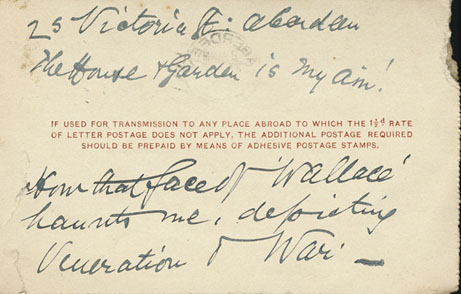 25 Victoria St: Aberdeen
The House & Garden is my aim!
IF USED FOR TRANSMISSION TO ANY PLACE ABROAD TO WHICH THE 1½d RATE
OF LETTER POSTAGE DOES NOT APPLY, THE ADDITIONAL POSTAGE REQUIRED
SHOULD BE PREPAID BY MEANS OF ADHESIVE POSTAGE STAMPS.
How that face of 'Wallace'
haunts me, depicting
Veneration & War. —